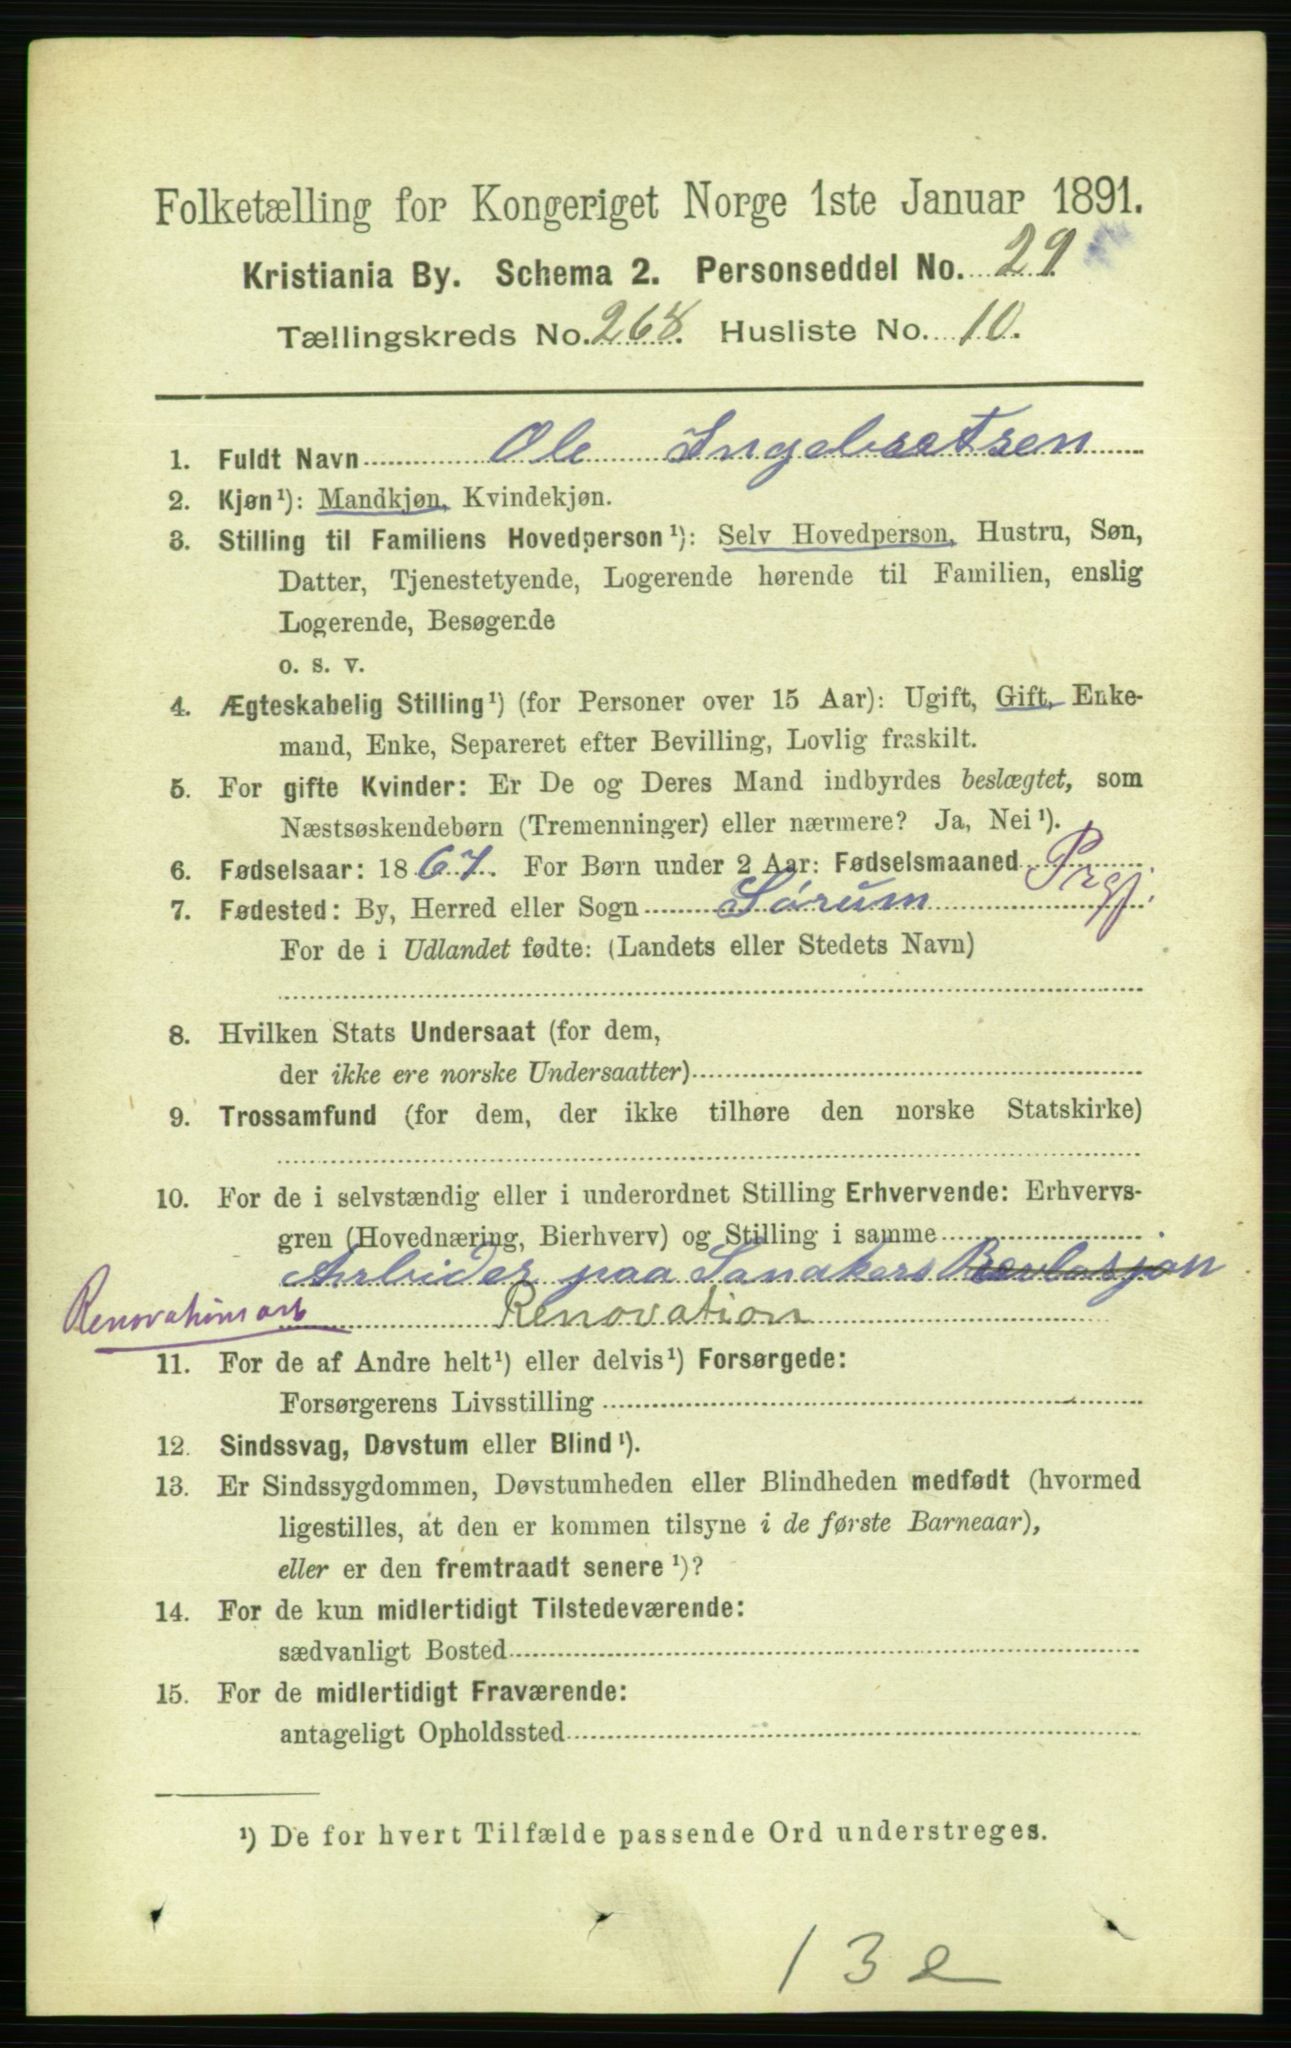 Folketælling for Kongeriget Norge 1ste Januar 1891.
Kristiania By. Schema 2. Personseddel No. 29
Tællingskreds No. 268. Husliste No. 10.
1. Fuldt Navn Ole Ingebretsen
2. Kjøn¹): Mandkjøn, Kvindekjøn.
3. Stilling til Familiens Hovedperson¹): Selv Hovedperson, Hustru, Søn,
Datter, Tjenestetyende, Logerende hørende til Familien, enslig
Logerende, Besøgende
o. s. v.
4. Ægteskabelig Stilling¹) (for Personer over 15 Aar): Ugift, Gift, Enke-
mand, Enke, Separeret efter Bevilling, Lovlig fraskilt.
5. For gifte Kvinder: Er De og Deres Mand indbyrdes beslægtet, som
Næstsøskendebørn (Tremenninger) eller nærmere? Ja, Nei¹).
6. Fødselsaar: 1867. For Børn under 2 Aar: Fødselsmaaned
7. Fødested: By, Herred eller Sogn Sørum Prgj.
For de i Udlandet fødte: (Landets eller Stedets Navn)
8. Hvilken Stats Undersaat (for dem,
der ikke ere norske Undersaatter)
9. Trossamfund (for dem, der ikke tilhøre den norske Statskirke)
10. For de i selvstændig eller i underordnet Stilling Erhvervende: Erhvervs-
gren (Hovednæring, Bierhverv) og Stilling i samme
Arbider paa Sanakers
Renovationsarb Renovation
11. For de af Andre helt¹) eller delvis¹) Forsørgede:
Forsørgerens Livsstilling
12. Sindssvag, Døvstum eller Blind¹).
13. Er Sindssygdommen, Døvstumheden eller Blindheden medfødt (hvormed
ligestilles, at den er kommen tilsyne i de første Barneaar),
eller er den fremtraadt senere¹)?
14. For de kun midlertidigt Tilstedeværende:
sædvanligt Bosted
15. For de midlertidigt Fraværende:
antageligt Opholdssted
¹) De for hvert Tilfælde passende Ord understreges.
13e